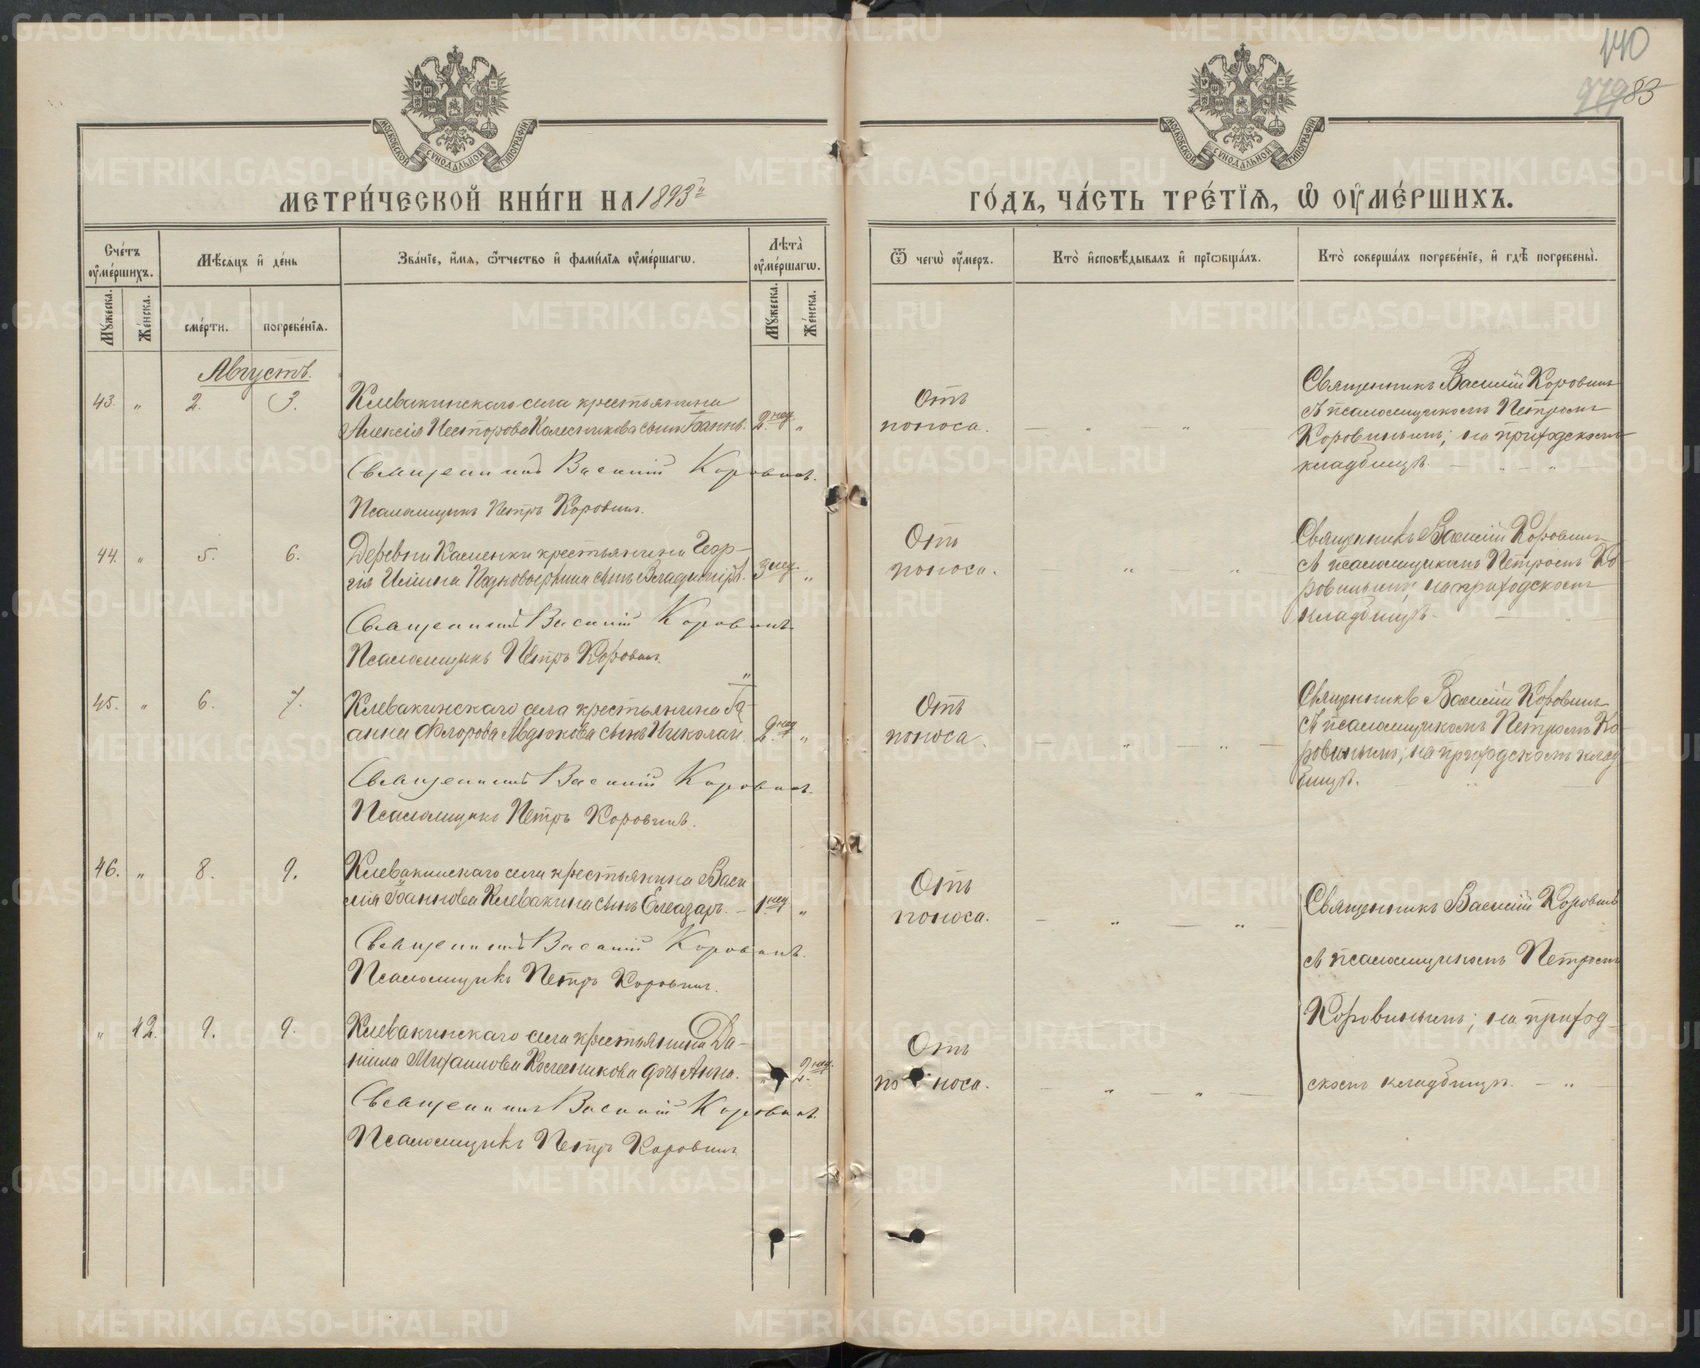 140
979 83
МОСКОВСКОЙ СѴНОДАЛЬНОЙ ТИПОГРАФІИ
МОСКОВСКОЙ СѴНОДАЛЬНОЙ ТИПОГРАФІИ
МЕТРИ́ЧЕСКОЙ КНИ́ГИ НА 1893й
ГО́ДЪ, ЧА́СТЬ ТРЕ́ТІѦ, Ѡ ОУ҆МЕ́РШИХЪ.
Сче́тъ оу҆ме́ршихъ.
Мꙋ́жеска.
Же́нска.
Мѣ́сѧцъ и҆ де́нь
сме́рти.
погребе́нїѧ.
Зва́нїе, и҆́мѧ, ѻ҆́тчество и҆ фами́лїѧ оу҆ме́ршагѡ.
Лѣ́та оу҆ме́ршагѡ.
Мꙋ́жеска.
Же́нска.
Ѿ чегѡ̀ оу҆́меръ.
Кто̀ и҆сповѣ́дывалъ и҆ прїѡбща́лъ.
Кто̀ соверша́лъ погребе́нїе, и҆ гдѣ̀ погребены̀.
Августъ.
43. " 2. 3. Клевакинскаго села крестьянина
Алексія Несторова Колесникова сынъ Іоаннъ. 2 нед. "
Священникъ Василій Коровинъ.
Псаломщикъ Петръ Коровинъ.
Отъ
поноса.
Священникъ Василій Коровинъ
съ псаломщикомъ Петромъ
Коровинымъ; на приходскомъ
кладбищѣ.
44. " 5. 6. Деревни Каменки крестьянина Геор-
гія Ильина сынъ Владиміръ. 3 нед. "
Священникъ Василій Коровинъ.
Псаломщикъ Петръ Коровинъ.
Отъ
поноса.
Священникъ Василій Коровинъ
съ псаломщикомъ Петромъ Ко-
ровинымъ; на приходскомъ
кладбищѣ.
45. " 6. 7. Клевакинскаго села крестьянина Іо-
анна Флорова Авдюкова сынъ Николай. 2 нед. "
Священникъ Василій Коровинъ.
Псаломщикъ Петръ Коровинъ.
Отъ
поноса.
Священникъ Василій Коровинъ
съ псаломщикомъ Петромъ Ко-
ровинымъ; на приходскомъ клад-
бищѣ.
46. " 8. 9. Клевакинскаго села крестьянина Васи-
лія Іоаннова Клевакина сынъ Елеазаръ. 1 нед. "
Священникъ Василій Коровинъ.
Псаломщикъ Петръ Коровинъ.
Отъ
поноса.
Священникъ Василій Коровинъ
съ псаломщикомъ Петромъ
Коровинымъ; на приход-
скомъ кладбищѣ.
" 42. 9. 9. Клевакинскаго села крестьянина Да-
ніила Михаилова Колесникова дочь Анна. " 2 нед.
Священникъ Василій Коровинъ.
Псаломщикъ Петръ Коровинъ
Отъ
поноса.
METRIKI.GASO-URAL.RU